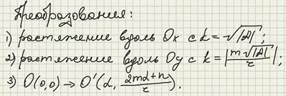 Преобразования:
1) растяжение вдоль Ox с k = √|A|;
2) растяжение вдоль Oy с k = |m√|A|/r|;
3) O(0,0) → O'(α, (2mα + n)/r).